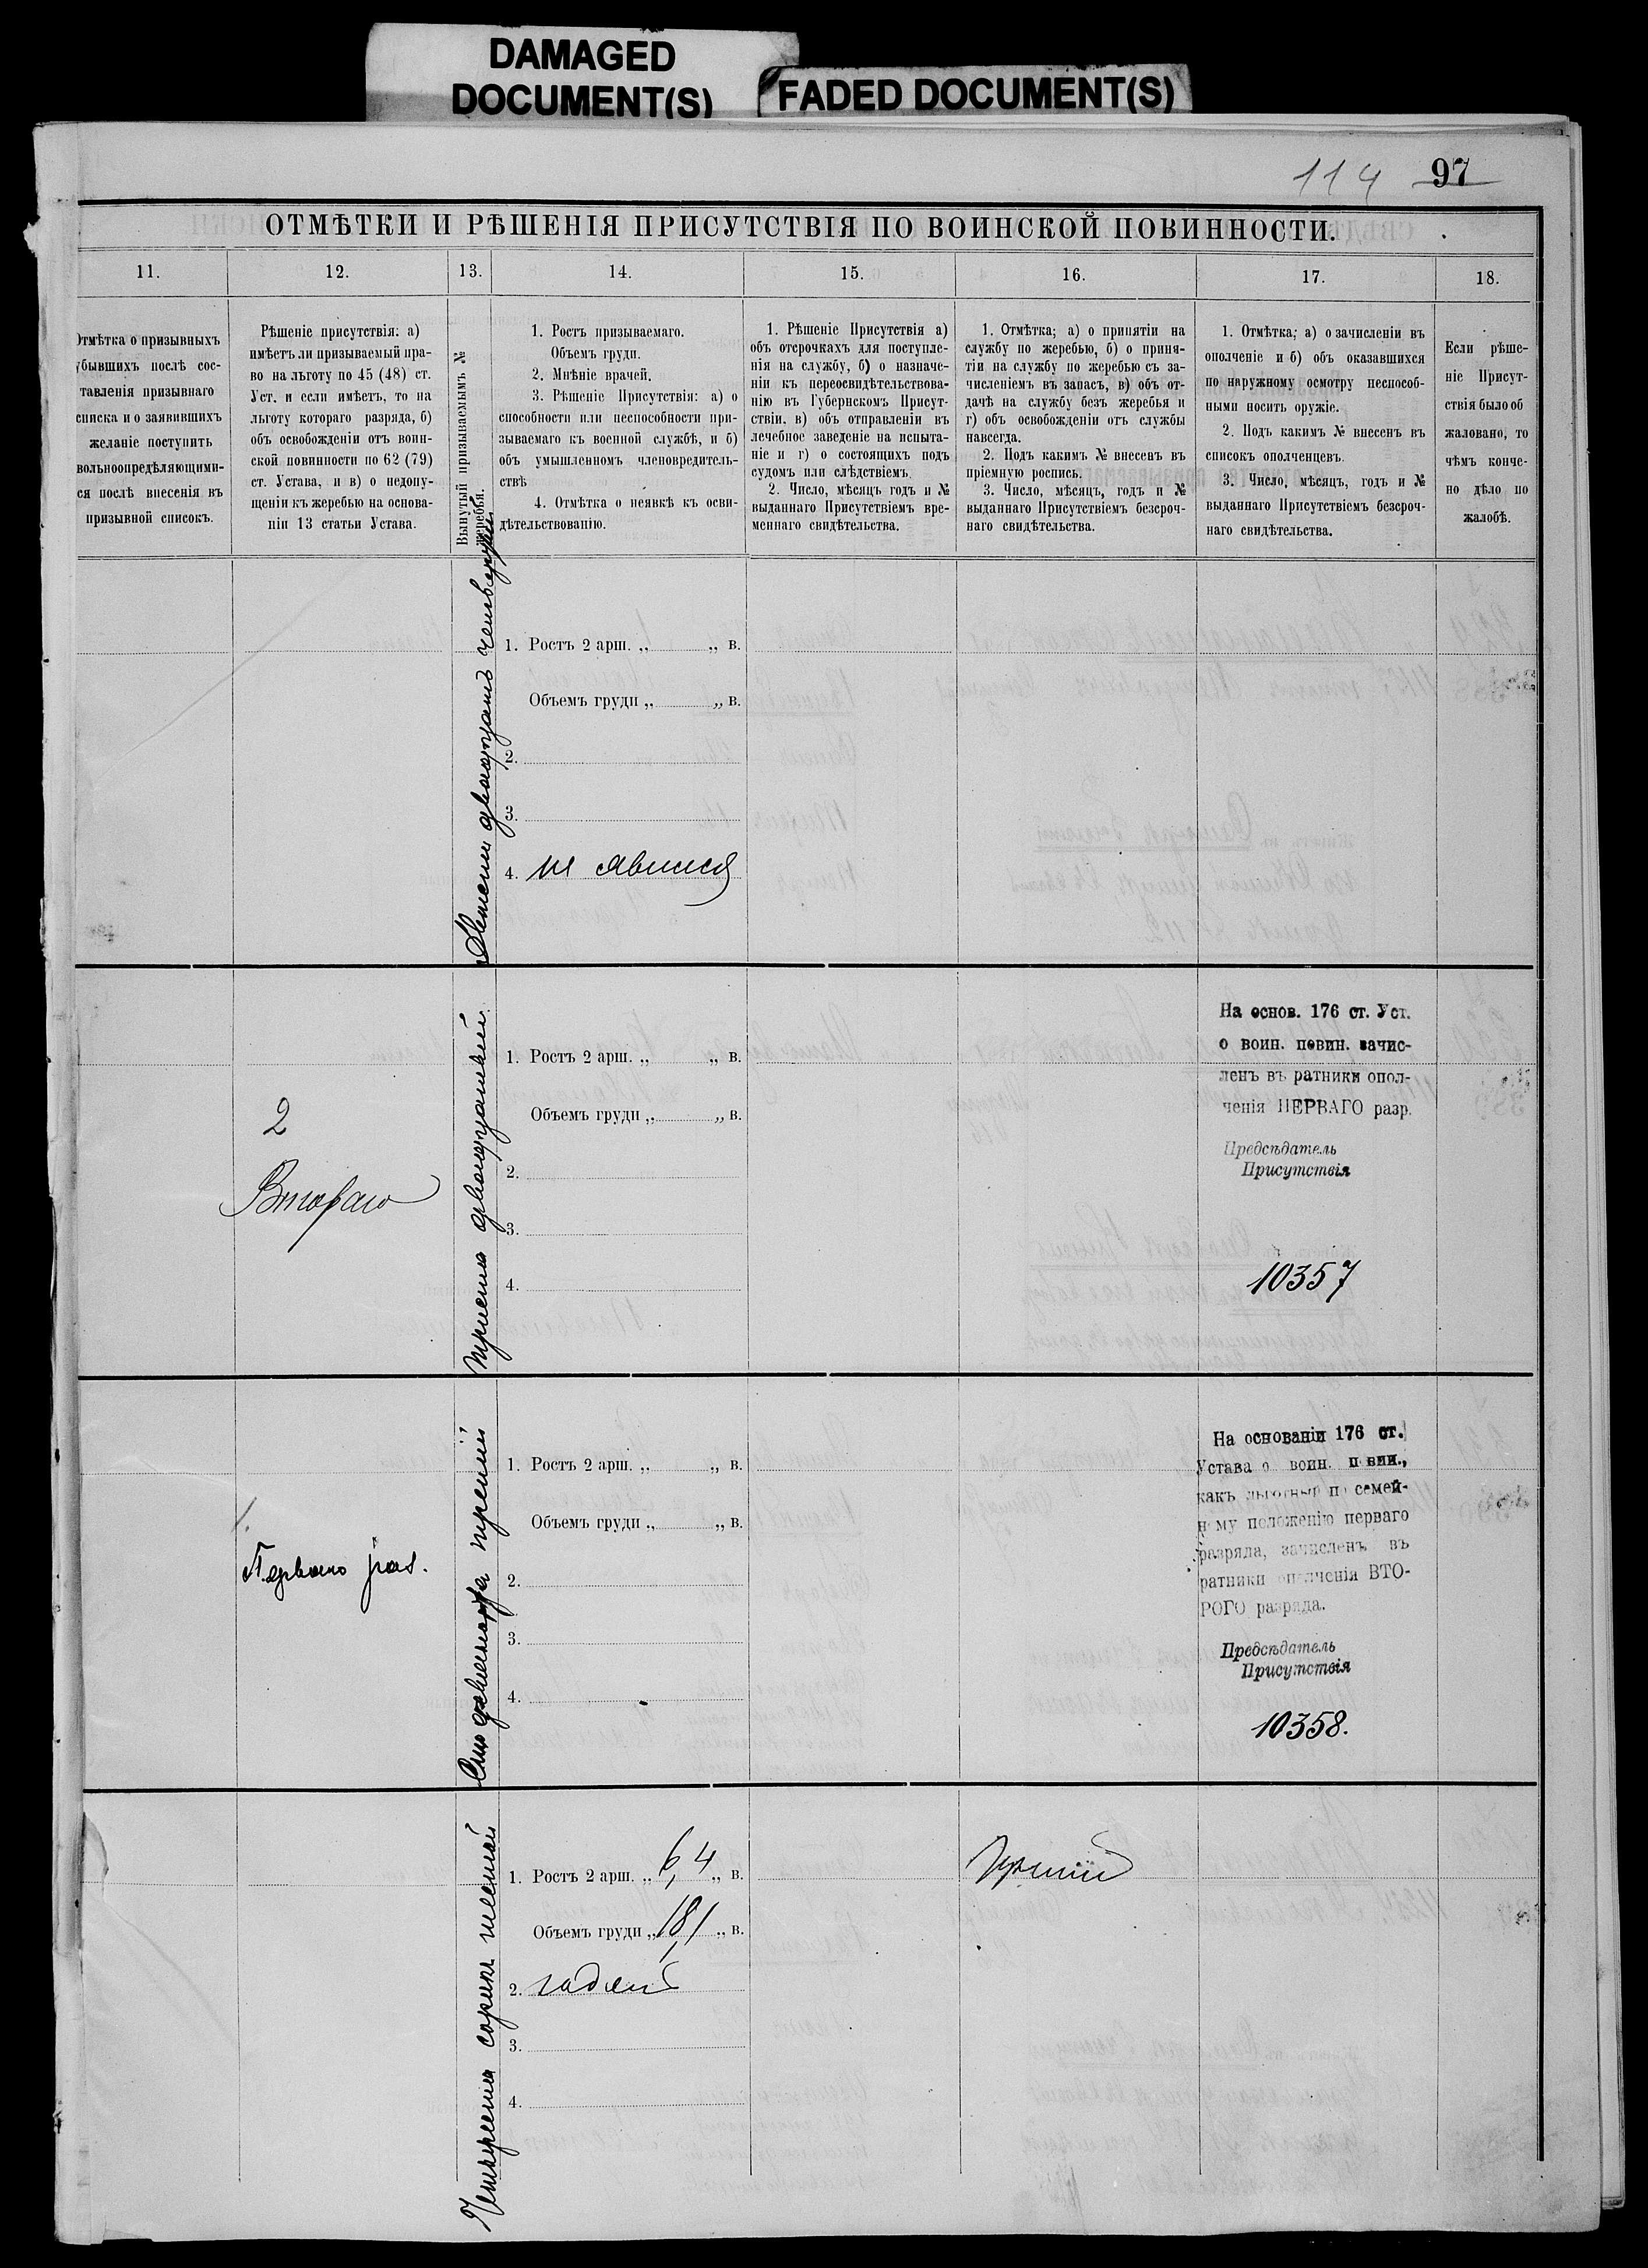 DAMAGED
DOCUMENT(S)
FADED DOCUMENT(S)
114 97
ОТМѢТКИ И РѢШЕНІЯ ПРИСУТСТВІЯ ПО ВОИНСКОЙ ПОВИННОСТИ.
11. 12. 13. 14. 15. 16. 17. 18.
Отмѣтка о призывныхъ
убывшихъ послѣ сос-
тавленія призывнаго
списка и о заявившихъ
желаніе поступить
вольноопредѣляющими-
ся послѣ внесенія въ
призывной списокъ.
Рѣшеніе присутствія: а)
имѣетъ ли призываемый пра-
во на льготу по 45 (48) ст.
Уст. и если имѣетъ, то на
льготу котораго разряда, б)
объ освобожденіи отъ воин-
ской повинности по 62 (79)
ст. Устава, и в) о недопу-
щеніи къ жеребью на основа-
ніи 13 статьи Устава.
Вынутый призываемымъ №
жеребья.
1. Ростъ призываемаго.
Объемъ груди.
2. Мнѣніе врачей.
3. Рѣшеніе Присутствія: а) о
способности или неспособности при-
зываемаго къ военной службѣ, и б)
объ умышленномъ членовредитель-
ствѣ
4. Отмѣтка о неявкѣ къ осви-
дѣтельствованію.
1. Рѣшеніе Присутствія а)
объ отсрочкахъ для поступле-
нія на службу, б) о назначе-
ніи къ переосвидѣтельствова-
нію въ Губернскомъ Присут-
ствіи. в) объ отправленіи въ
лечебное заведеніе на испыта-
ніе и г) о состоящихъ подъ
судомъ или слѣдствіемъ.
2. Число, мѣсяцъ годъ и №
выданнаго Присутствіемъ вре-
меннаго свидѣтельства.
1. Отмѣтка; а) о принятіи на
службу по жеребью, б) о приня-
тіи на службу по жеребью съ за-
численіемъ въ запасъ, в) объ от-
дачѣ на службу безъ жеребья и
г) объ освобожденіи отъ службы
навсегда.
2. Подъ какимъ № внесенъ въ
пріемную роспись.
3. Число, мѣсяцъ, годъ и №
выданнаго Присутствіемъ безсроч-
наго свидѣтельства.
1. Отмѣтка; а) о зачисленіи въ
ополченіе и б) объ оказавшихся
по наружному осмотру неспособ-
ными носить оружіе.
2. Подъ какимъ № внесенъ въ
списокъ ополченцевъ.
3. Число, мѣсяцъ, годъ и №
выданнаго Присутствіемъ безсроч-
наго свидѣтельства.
Если рѣше-
ніе Присут-
ствія было об
жаловано, то
чѣмъ конче-
но дѣло по
жалобѣ.
двадцать четвертый
1. Ростъ 2 арш. „ „ в.
Объемъ груди „ „ в.
2.
3.
4. не явился
2
Втораго
Триста двадцатый
1. Ростъ 2 арш. „ „ в.
Объемъ груди „ „ в.
2.
3.
4.
На основ. 176 ст. Уст.
о воин. повин. зачис-
ленъ въ ратники опол-
ченія ПЕРВАГО разр.
Предсѣдатель
Присутствія
10357
1.
Перваго раз.
Сто девяносто третій
1. Ростъ 2 арш. „ „ в.
Объемъ груди „ „ в.
2.
3.
4.
На основаніи 176 ст.
Устава о воин. повин.,
какъ льготный по семей-
ному положенію перваго
разряда, зачисленъ въ
ратники ополченія ВТО-
РОГО разряда.
Предсѣдатель
Присутствія
10358.
Четыреста сорокъ шестой
1. Ростъ 2 арш. „ 6,4 „ в.
Объемъ груди „ 18,1 „ в.
2. годенъ
3.
4.